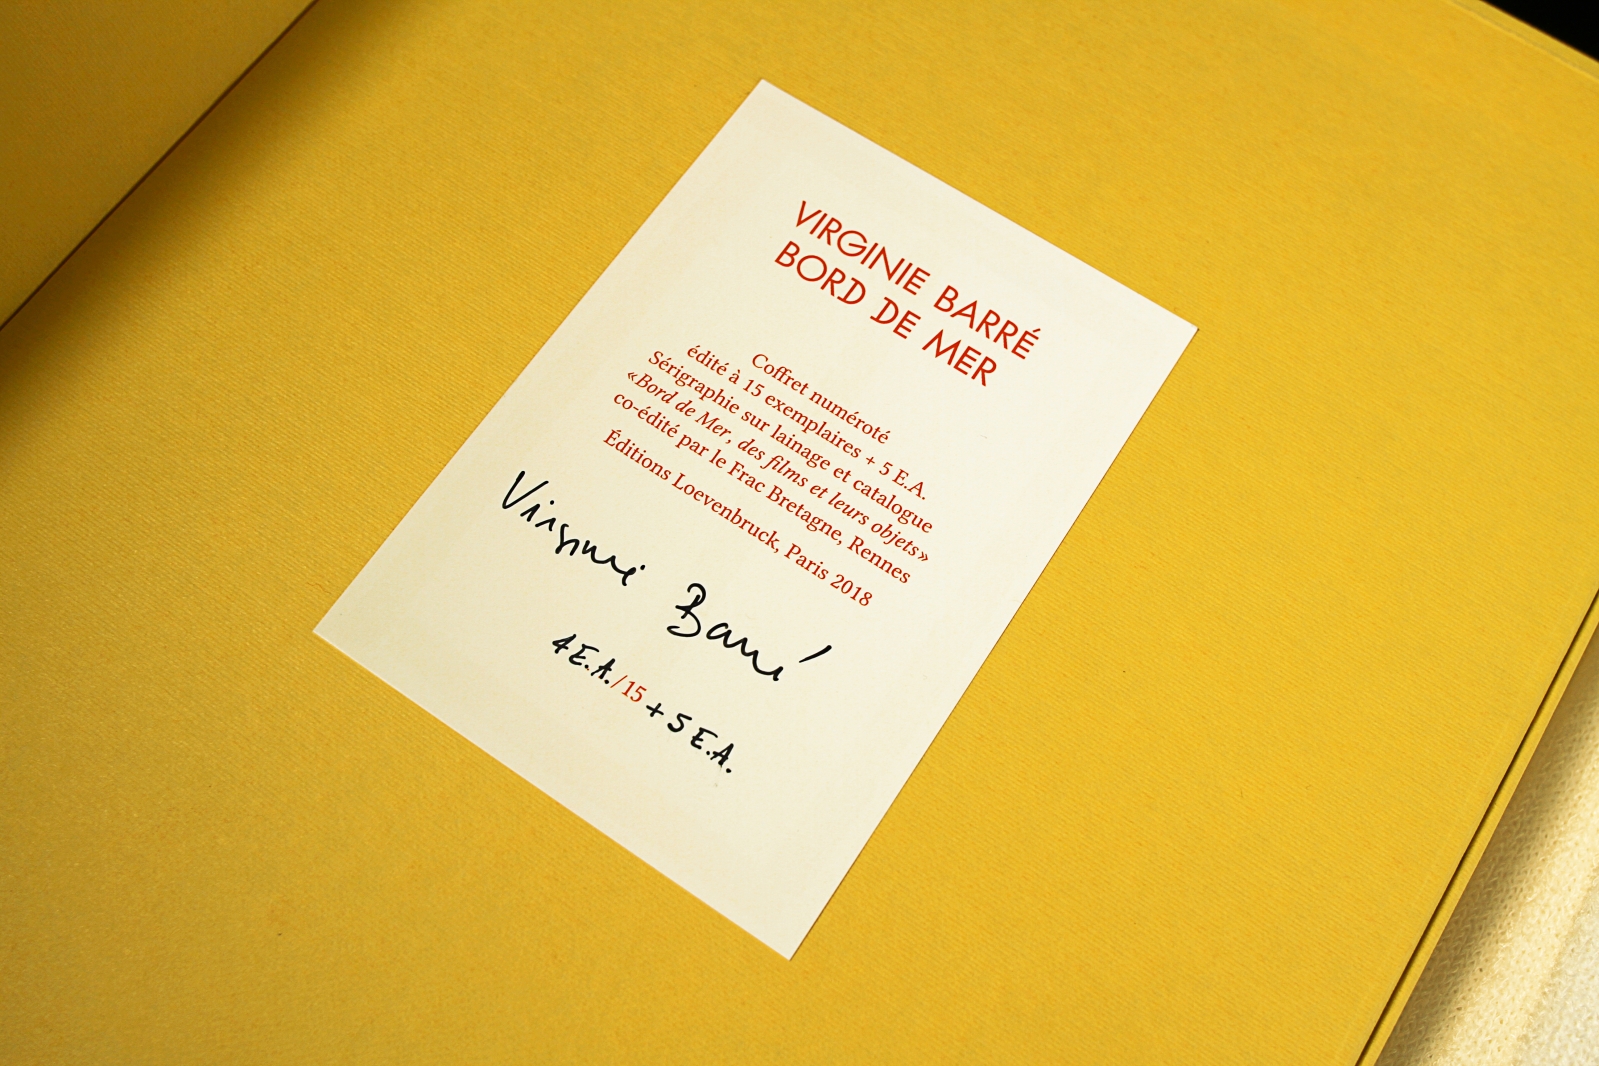 VIRGINIE BARRÉ
BORD DE MER
Coffret numéroté
édité à 15 exemplaires + 5 E.A.
Sérigraphie sur lainage et catalogue
«Bord de Mer, des films et leurs objets»
co-édité par le Frac Bretagne, Rennes
Éditions Loevenbruck, Paris 2018
Virginie Barré
4 E.A./15 + 5 E.A.